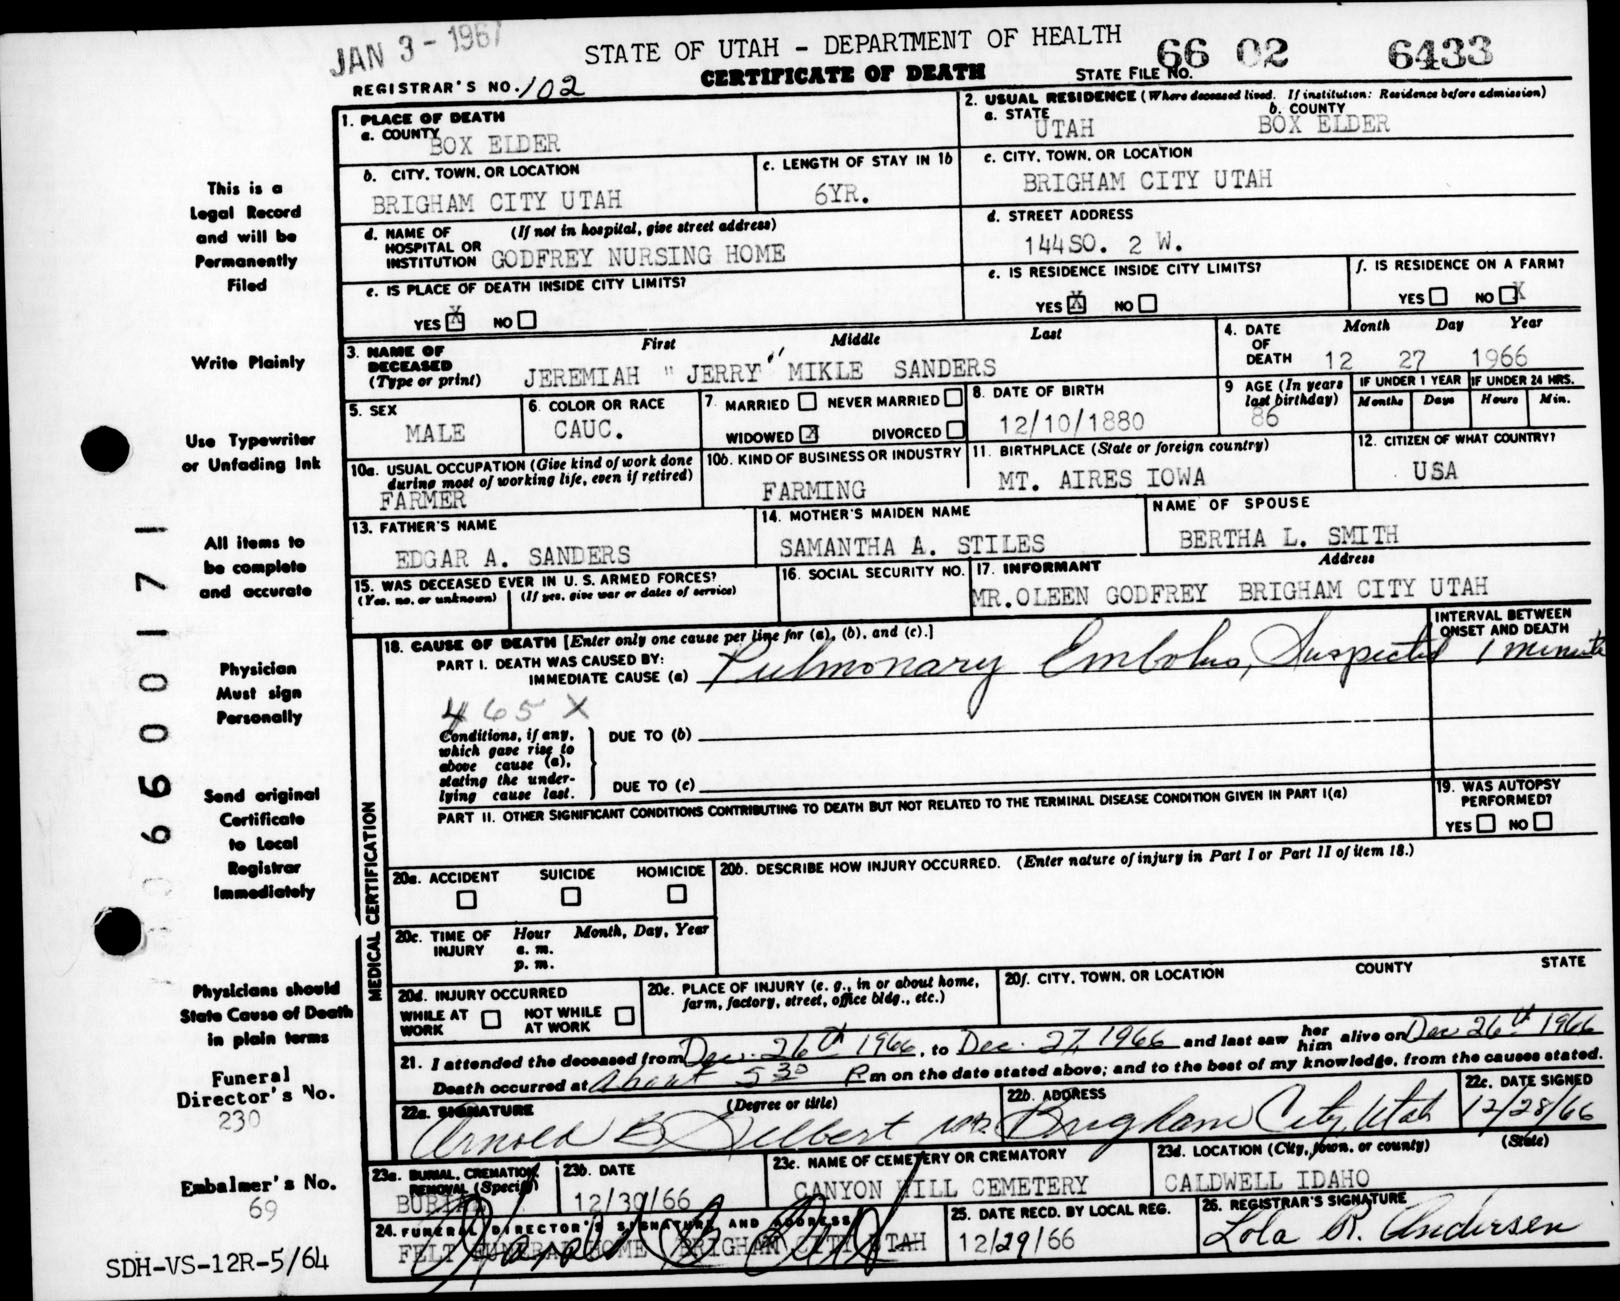 JAN 3 - 1967
STATE OF UTAH - DEPARTMENT OF HEALTH
CERTIFICATE OF DEATH
STATE FILE NO. 66 02 6433
REGISTRAR'S NO. 102
1. PLACE OF DEATH
a. COUNTY
BOX ELDER
2. USUAL RESIDENCE (Where deceased lived. If institution: Residence before admission)
a. STATE b. COUNTY
UTAH BOX ELDER
b. CITY, TOWN, OR LOCATION
BRIGHAM CITY UTAH
c. LENGTH OF STAY IN 1b
6YR.
c. CITY, TOWN, OR LOCATION
BRIGHAM CITY UTAH
d. NAME OF HOSPITAL OR INSTITUTION (If not in hospital, give street address)
GODFREY NURSING HOME
d. STREET ADDRESS
144SO. 2 W.
e. IS PLACE OF DEATH INSIDE CITY LIMITS?
YES X NO
e. IS RESIDENCE INSIDE CITY LIMITS?
YES X NO
f. IS RESIDENCE ON A FARM?
YES NO X
3. NAME OF DECEASED (Type or print)
First Middle Last
JEREMIAH "JERRY" MIKLE SANDERS
4. DATE OF DEATH
Month Day Year
12 27 1966
5. SEX
MALE
6. COLOR OR RACE
CAUC.
7. MARRIED NEVER MARRIED
WIDOWED X DIVORCED
8. DATE OF BIRTH
12/10/1880
9 AGE (In years last birthday)
86
IF UNDER 1 YEAR
Months Days
IF UNDER 24 HRS.
Hours Min.
10a. USUAL OCCUPATION (Give kind of work done during most of working life, even if retired)
FARMER
10b. KIND OF BUSINESS OR INDUSTRY
FARMING
11. BIRTHPLACE (State or foreign country)
MT. AIRES IOWA
12. CITIZEN OF WHAT COUNTRY?
USA
13. FATHER'S NAME
EDGAR A. SANDERS
14. MOTHER'S MAIDEN NAME
SAMANTHA A. STILES
NAME OF SPOUSE
BERTHA L. SMITH
15. WAS DECEASED EVER IN U. S. ARMED FORCES?
(Yes, no, or unknown) (If yes, give war or dates of service)
16. SOCIAL SECURITY NO.
17. INFORMANT Address
MR. OLEEN GODFREY BRIGHAM CITY UTAH
MEDICAL CERTIFICATION
18. CAUSE OF DEATH [Enter only one cause per line for (a), (b), and (c).]
PART I. DEATH WAS CAUSED BY:
IMMEDIATE CAUSE (a) Pulmonary Embolus, Suspected
INTERVAL BETWEEN ONSET AND DEATH
1 minute
465 X
Conditions, if any, which gave rise to above cause (a), stating the underlying cause last.
DUE TO (b)
DUE TO (c)
PART II. OTHER SIGNIFICANT CONDITIONS CONTRIBUTING TO DEATH BUT NOT RELATED TO THE TERMINAL DISEASE CONDITION GIVEN IN PART I(a)
19. WAS AUTOPSY PERFORMED?
YES NO
20a. ACCIDENT SUICIDE HOMICIDE
20b. DESCRIBE HOW INJURY OCCURRED. (Enter nature of injury in Part I or Part II of item 18.)
20c. TIME OF INJURY
Hour Month, Day, Year
a. m.
p. m.
20d. INJURY OCCURRED
WHILE AT WORK NOT WHILE AT WORK
20e. PLACE OF INJURY (e. g., in or about home, farm, factory, street, office bldg., etc.)
20f. CITY, TOWN, OR LOCATION COUNTY STATE
21. I attended the deceased from Dec. 26th 1966, to Dec. 27, 1966 and last saw her him alive on Dec 26th 1966
Death occurred at About 5 30 P m on the date stated above; and to the best of my knowledge, from the causes stated.
22a. SIGNATURE (Degree or title)
Arnold B Gilbert MD.
22b. ADDRESS
Brigham City, Utah
22c. DATE SIGNED
12/28/66
23a. BURIAL, CREMATION, REMOVAL (Specify)
BURIAL
23b. DATE
12/30/66
23c. NAME OF CEMETERY OR CREMATORY
CANYON HILL CEMETERY
23d. LOCATION (City, town, or county) (State)
CALDWELL IDAHO
24. FUNERAL DIRECTOR'S SIGNATURE AND ADDRESS
FELT FUNERAL HOME BRIGHAM CITY UTAH
25. DATE RECD. BY LOCAL REG.
12/29/66
26. REGISTRAR'S SIGNATURE
Lola R. Andersen
This is a
Legal Record
and will be
Permanently
Filed
Write Plainly
Use Typewriter
or Unfading Ink
All items to
be complete
and accurate
Physician
Must sign
Personally
Send original
Certificate
to Local
Registrar
Immediately
Physicians should
State Cause of Death
in plain terms
Funeral
Director's No.
230
Embalmer's No.
69
SDH-VS-12R-5/64